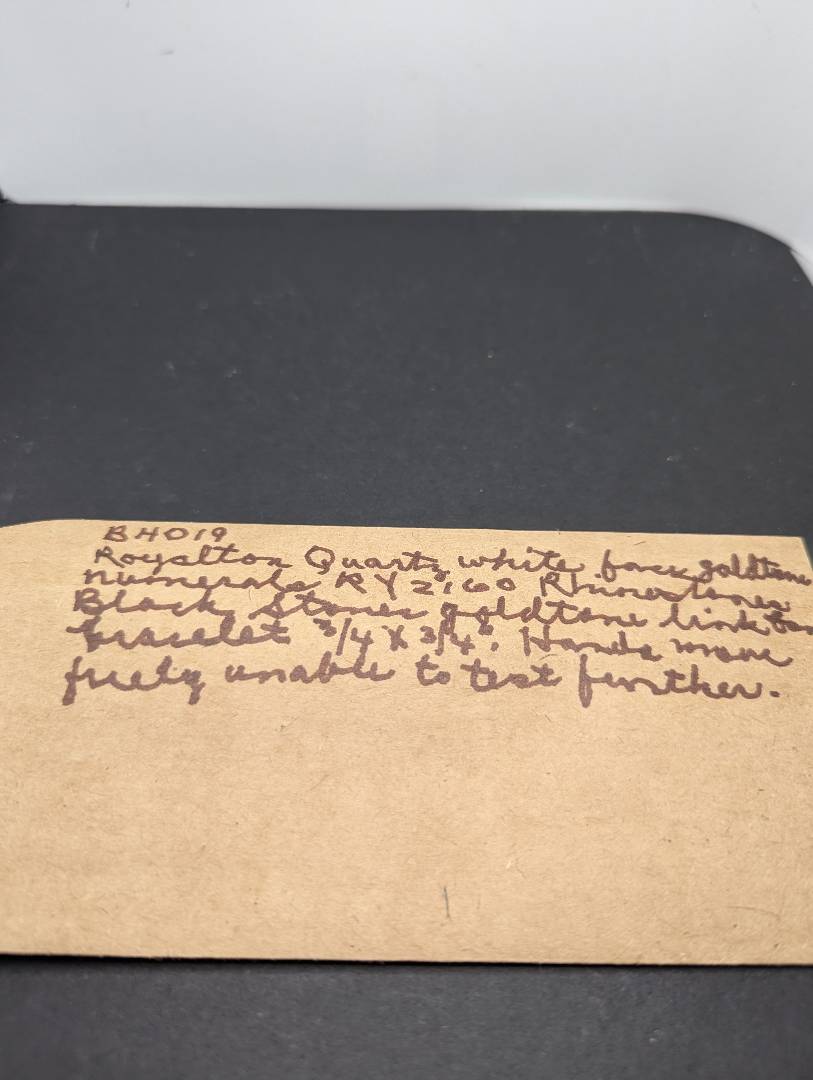 BH019
Royalton Quartz white face goldtone
numerals RY2160 Rhinestones
Black Stones goldtone link
bracelet 3/4 X 3/4". Hands move
freely unable to test further.